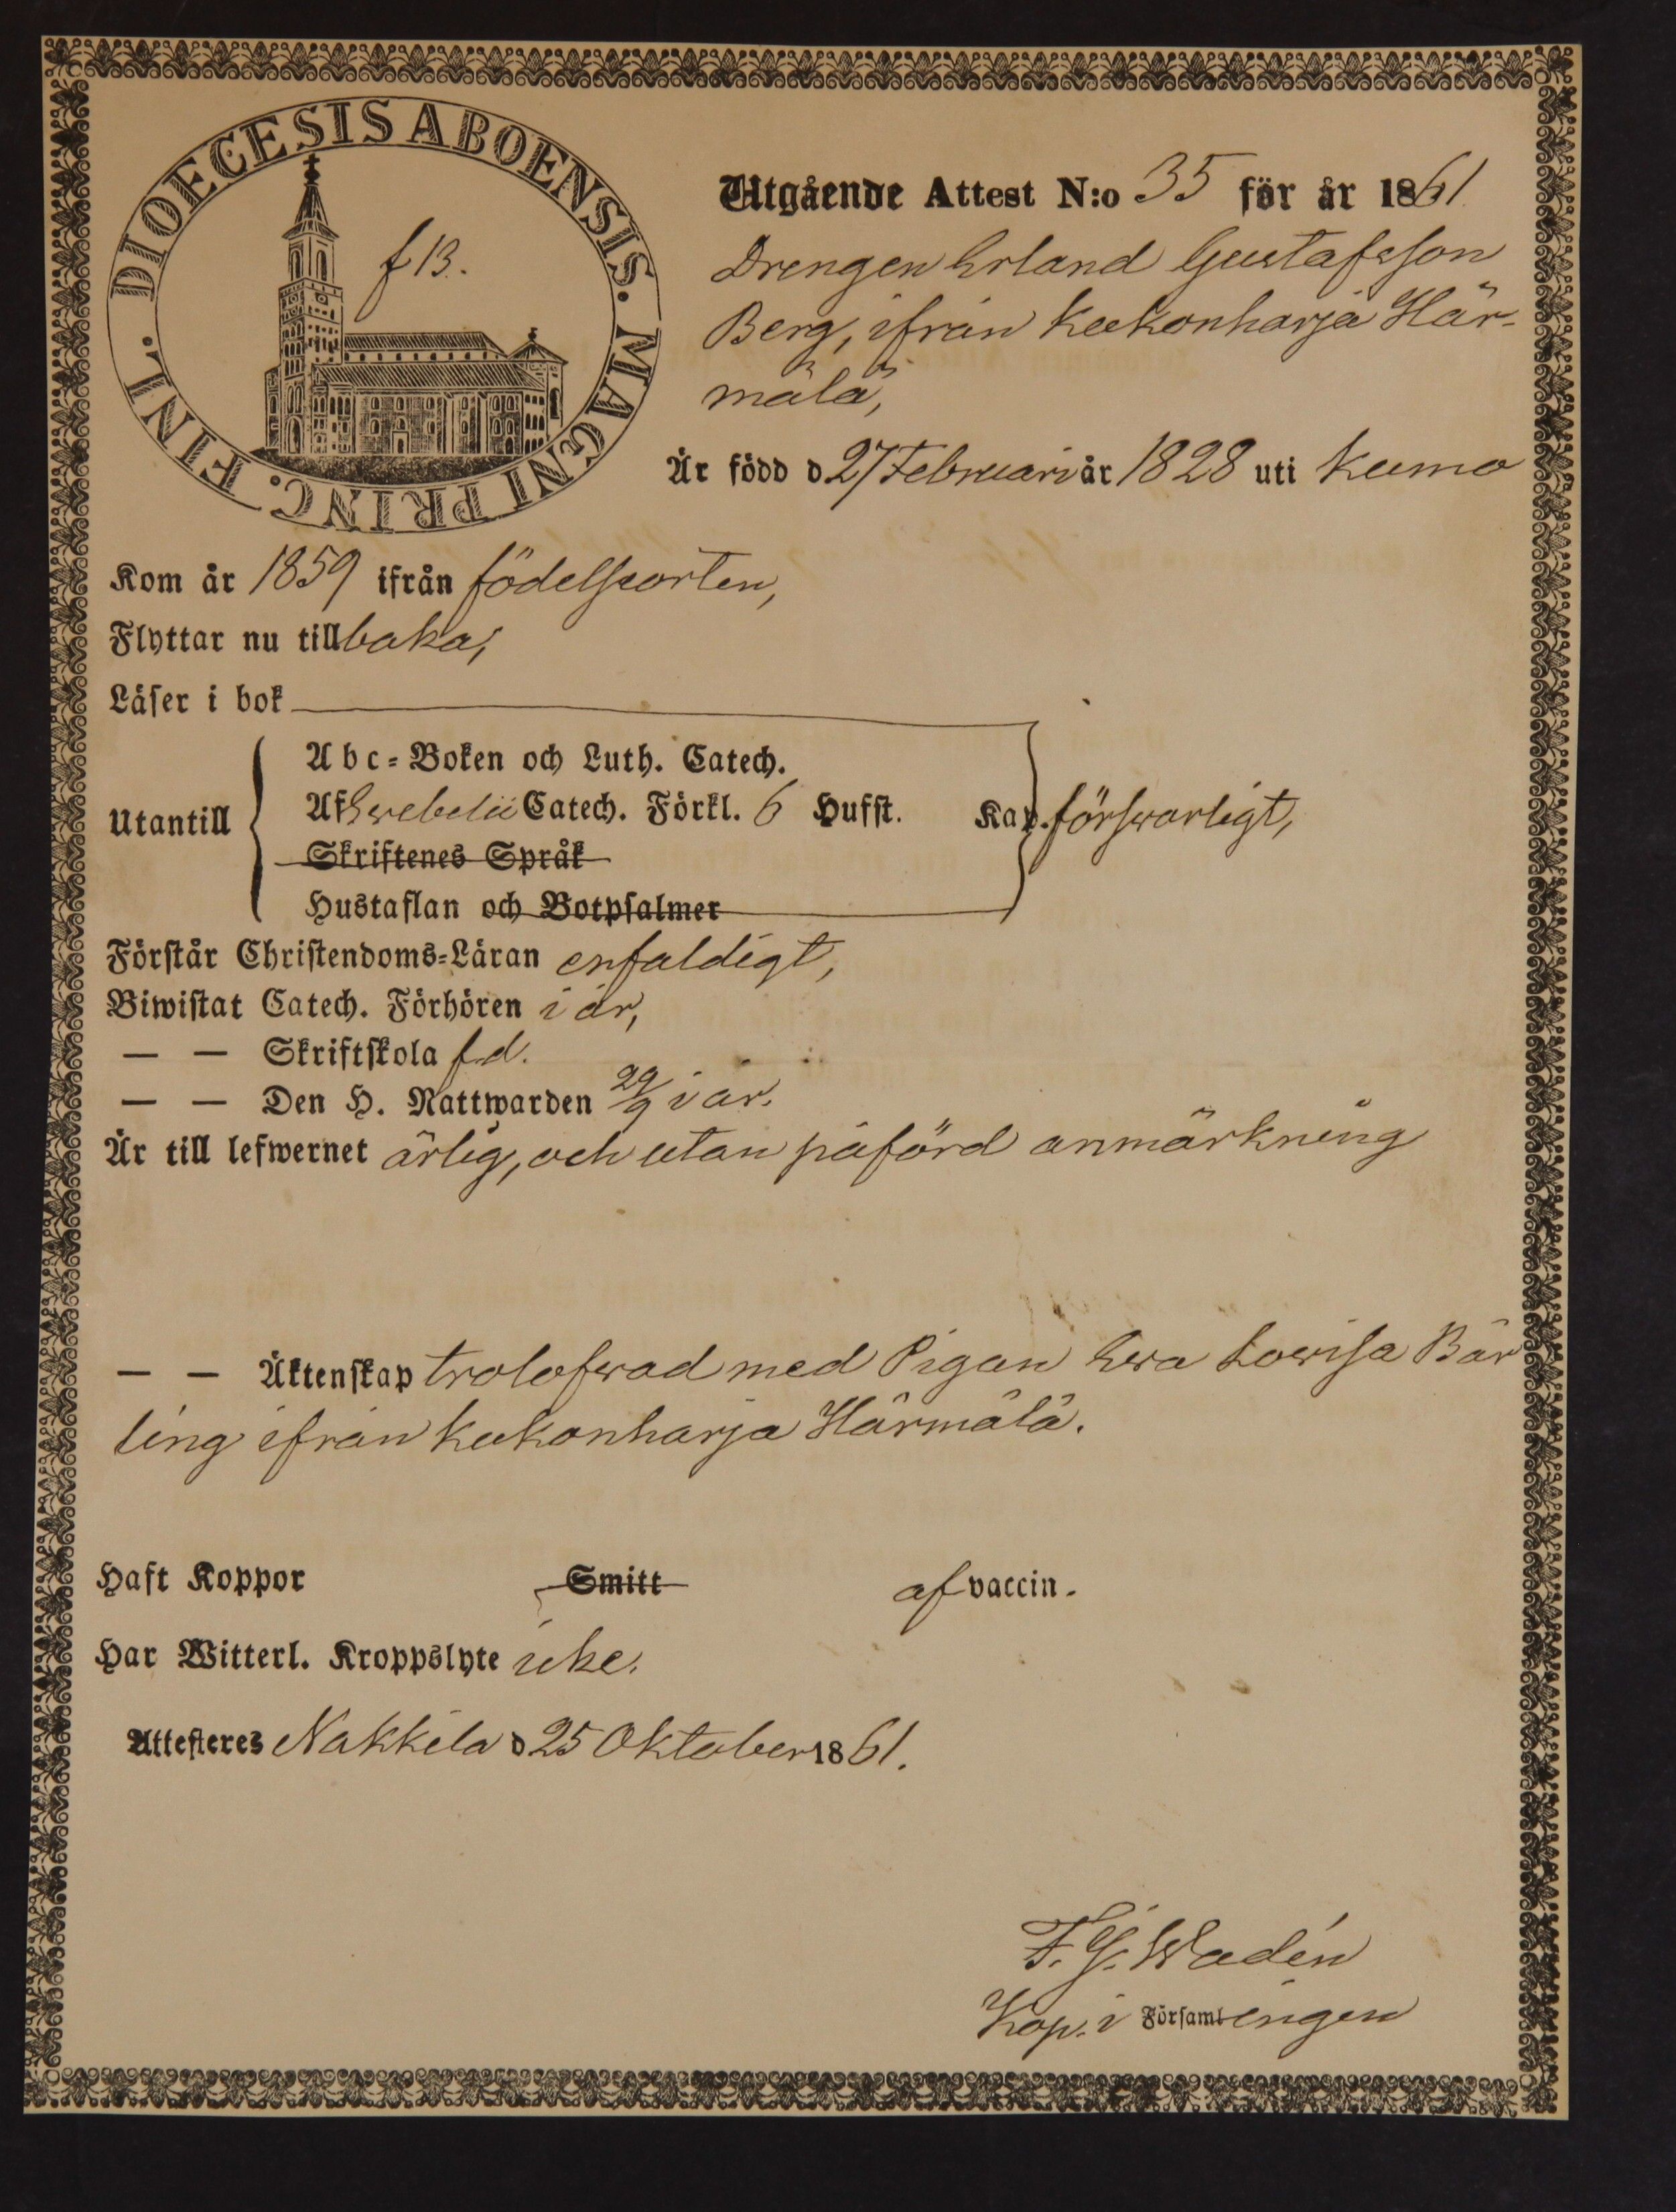 DIOECESIS ABOENSIS. MAGNI PRINC. FINL.
f 13.
Utgående Attest N:o 35 för år 1861.
Drengen Erland Gustafsson
Berg, ifrån Keekonharja Här-
mälä,
Är född d 27 Februari år 1828 uti Kumo
Kom år 1859 ifrån födelseorten,
Flyttar nu tillbaka,
Läser i bok
Utantill
Abc-Boken och Luth. Catech.
Af Swebelii Catech. Förkl. 6 Hufst. Kap. förswarligt,
Skriftenes Språk
Hustaflan och Botpsalmer
Förstår Christendoms-Läran enfaldigt,
Biwistat Catech. Förhören i år,
— — Skriftskola f.d.
— — Den H. Nattwarden 29/9 i år.
Är till lefwernet ärlig, och utan påförd anmärkning
— — Äktenskap trolofwad med Pigan Ewa Lowisa Bär
ling ifrån Keekonharja Härmälä.
Haft Koppor Smitt af vaccin.
Har Witterl. Kroppslyte icke.
Attesteres Nakkila d 25 Oktober 1861.
F. G. Wadén
Kap. i Församlingen